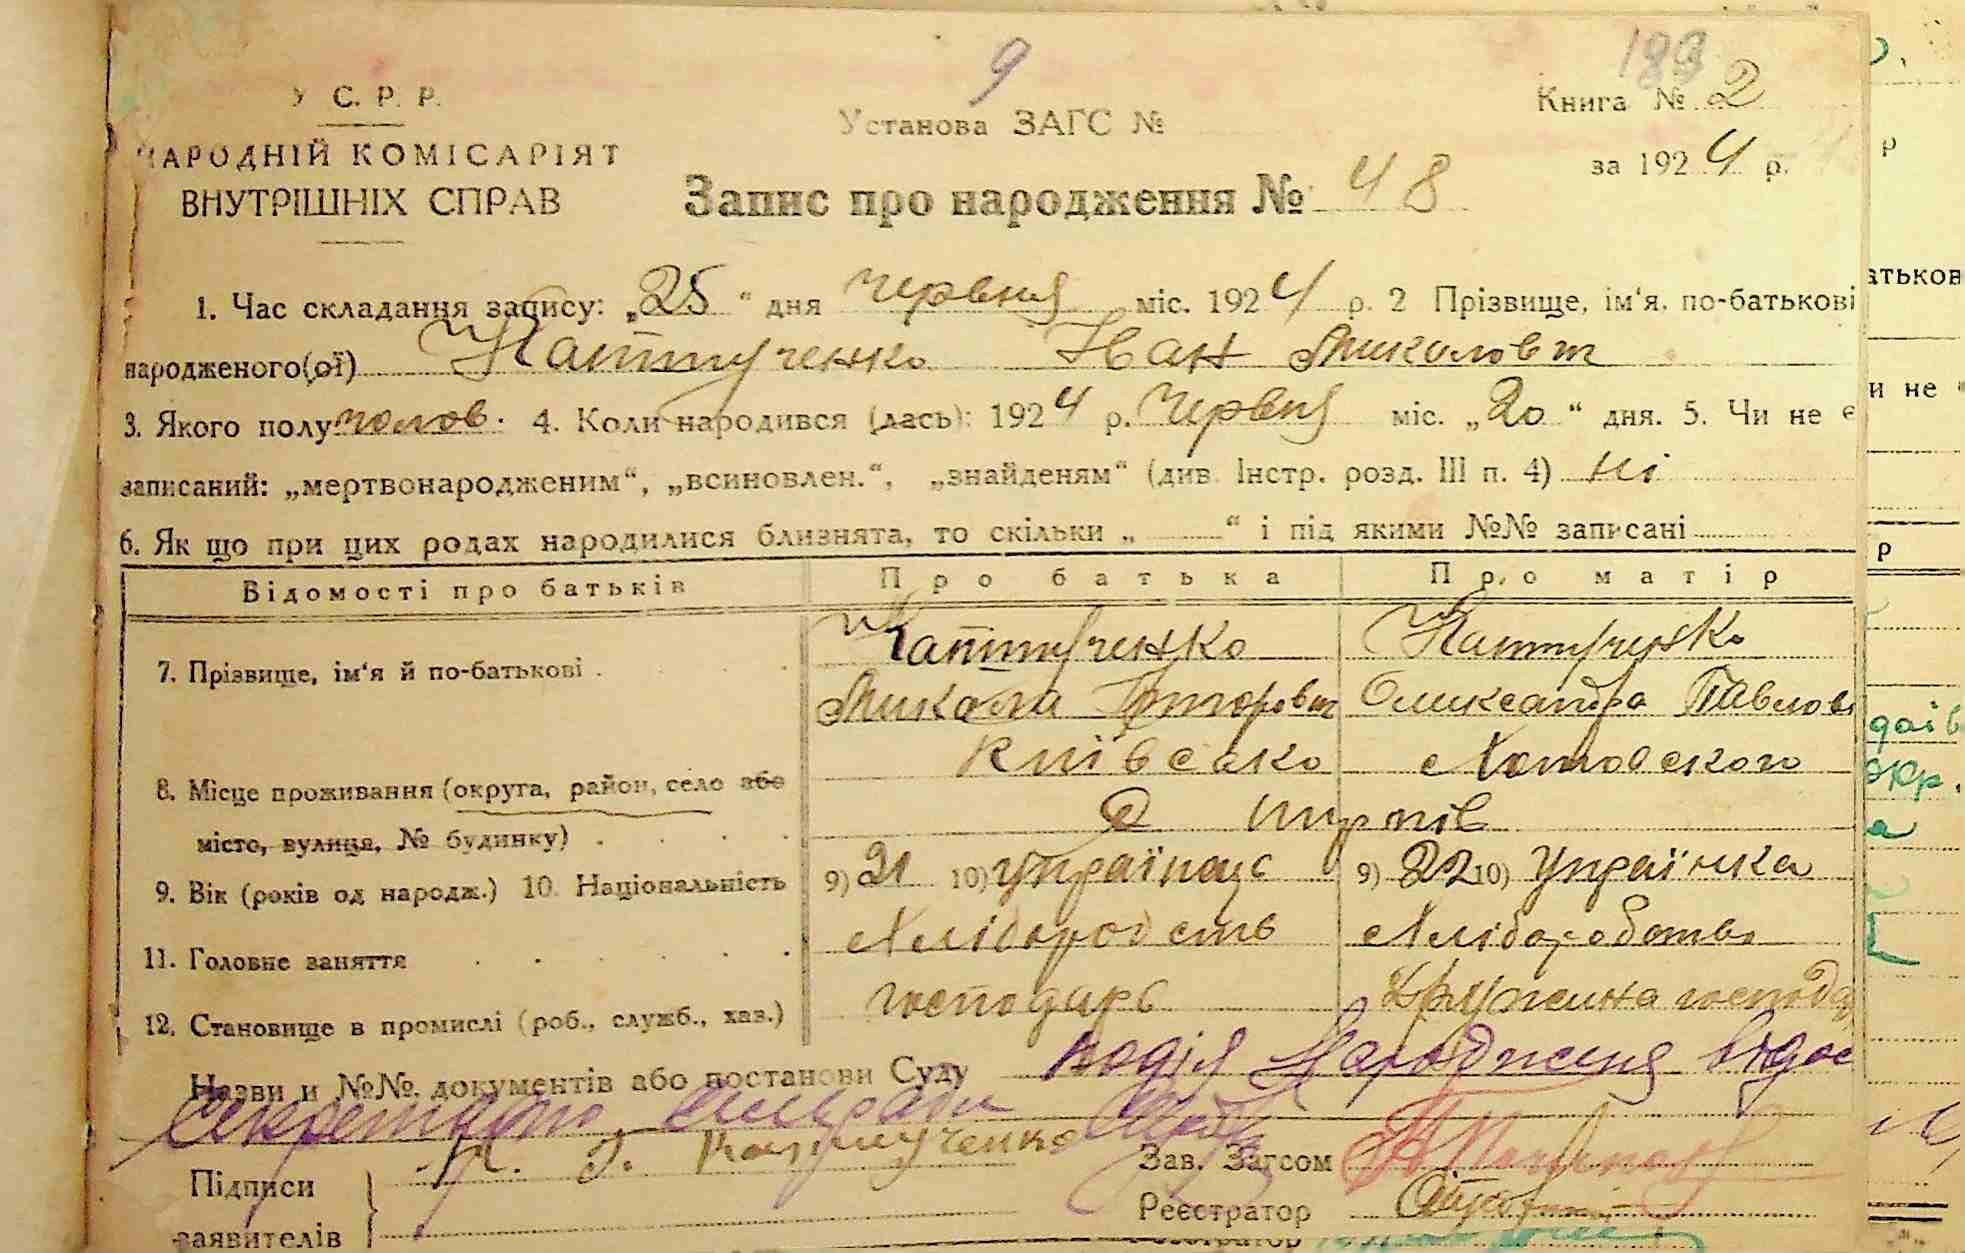 9
189
У С. Р. Р.
Установа ЗАГС №
Книга № 2
НАРОДНІЙ КОМІСАРІЯТ
за 1924 р.
ВНУТРІШНІХ СПРАВ
Запис про народження № 48
1. Час складання запису: „25“ дня червня міс. 1924 р. 2 Прізвище, ім‘я. по-батькові
народженого(ої) Каптученко Іван Миколовт
3. Якого полу чолов. 4. Коли народився (лась): 1924 р. Червня міс. „20“ дня. 5. Чи не є
записаний: „мертвонародженим“, „всиновлен.“, „знайденям“ (див. Інстр. розд. III п. 4) Ні
6. Як що при цих родах народилися близнята, то скільки „ “ і під якими №№ записані
Відомості про батьків Про батька Про матір
7. Прізвище, ім‘я й по-батькові . Каптученко Каптученко
Микола Олександра Павлов
Київсько Хотовского
8. Місце проживання (округа, район, село або
місто, вулиця, № будинку) .
9. Вік (років од народж.) 10. Національність 9) 21 10) Українець 9) 22 10) Українка
11. Головне заняття Хлібороб ств Хлібороботво
12. Становище в промислі (роб., служб., хаз.) господарь Дружина господа
Назви и №№ документів або постанови Суду подія Народження
Секретарю сільради
Підписи
заявителів
Г. Каптученко
Зав. Загсом
Реєстратор